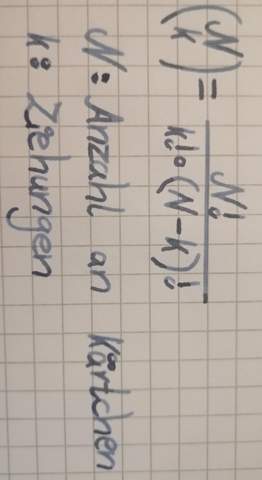 (N k) = N! / k! · (N-k)!
N: Anzahl an Kärtchen
k: Ziehungen